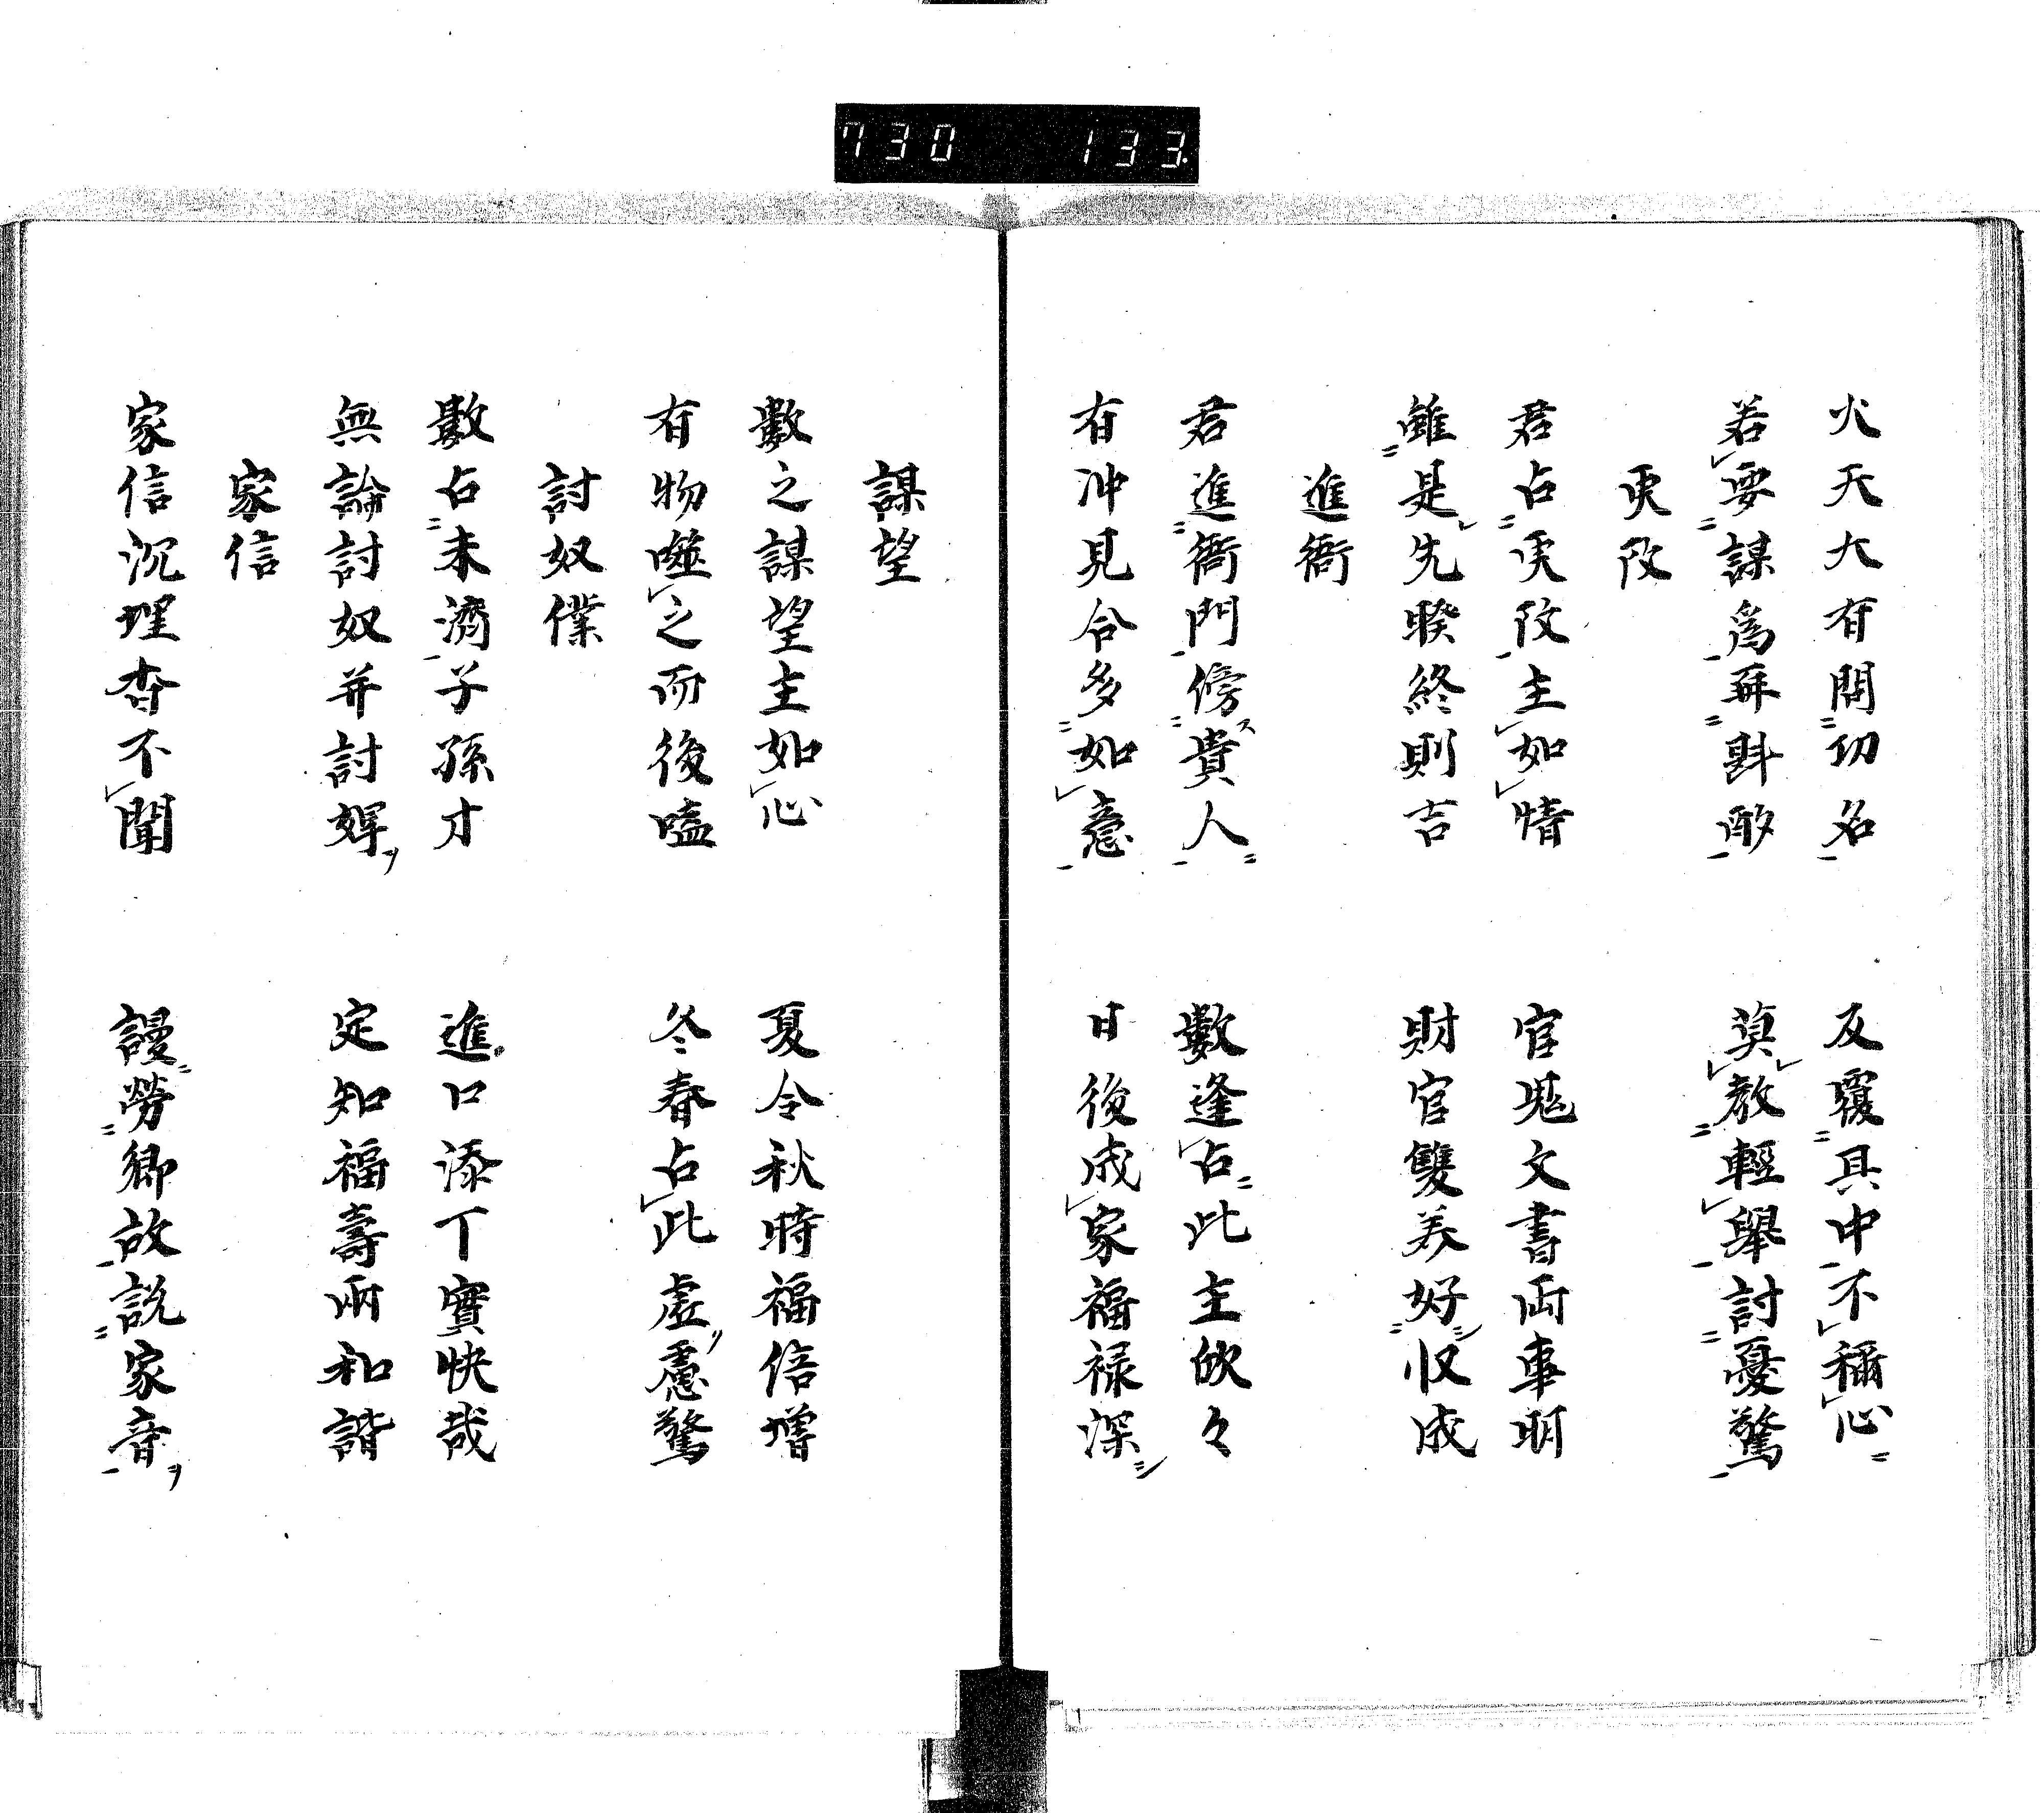 730 133
火天大有問功名 反覆其中不稱心
若要謀爲再斟酌 莫教輕舉討憂驚
更改
君占更改主如情 官鬼文書両事明
雖是先睽終則吉 財官雙美好收成
進衙
君進衙門傍貴人 數逢占此主欣々
有冲見合多如意 日後成家福禄深
謀望
數之謀望主如心 夏令秋時福倍增
有物噬之而後嗑 冬春占此虛慮驚
討奴僕
數占未濟子孫才 進口添丁實快哉
無論討奴并討婢 定知福壽兩和諧
家信
家信沉埋杳不聞 謾勞鄉故説家音